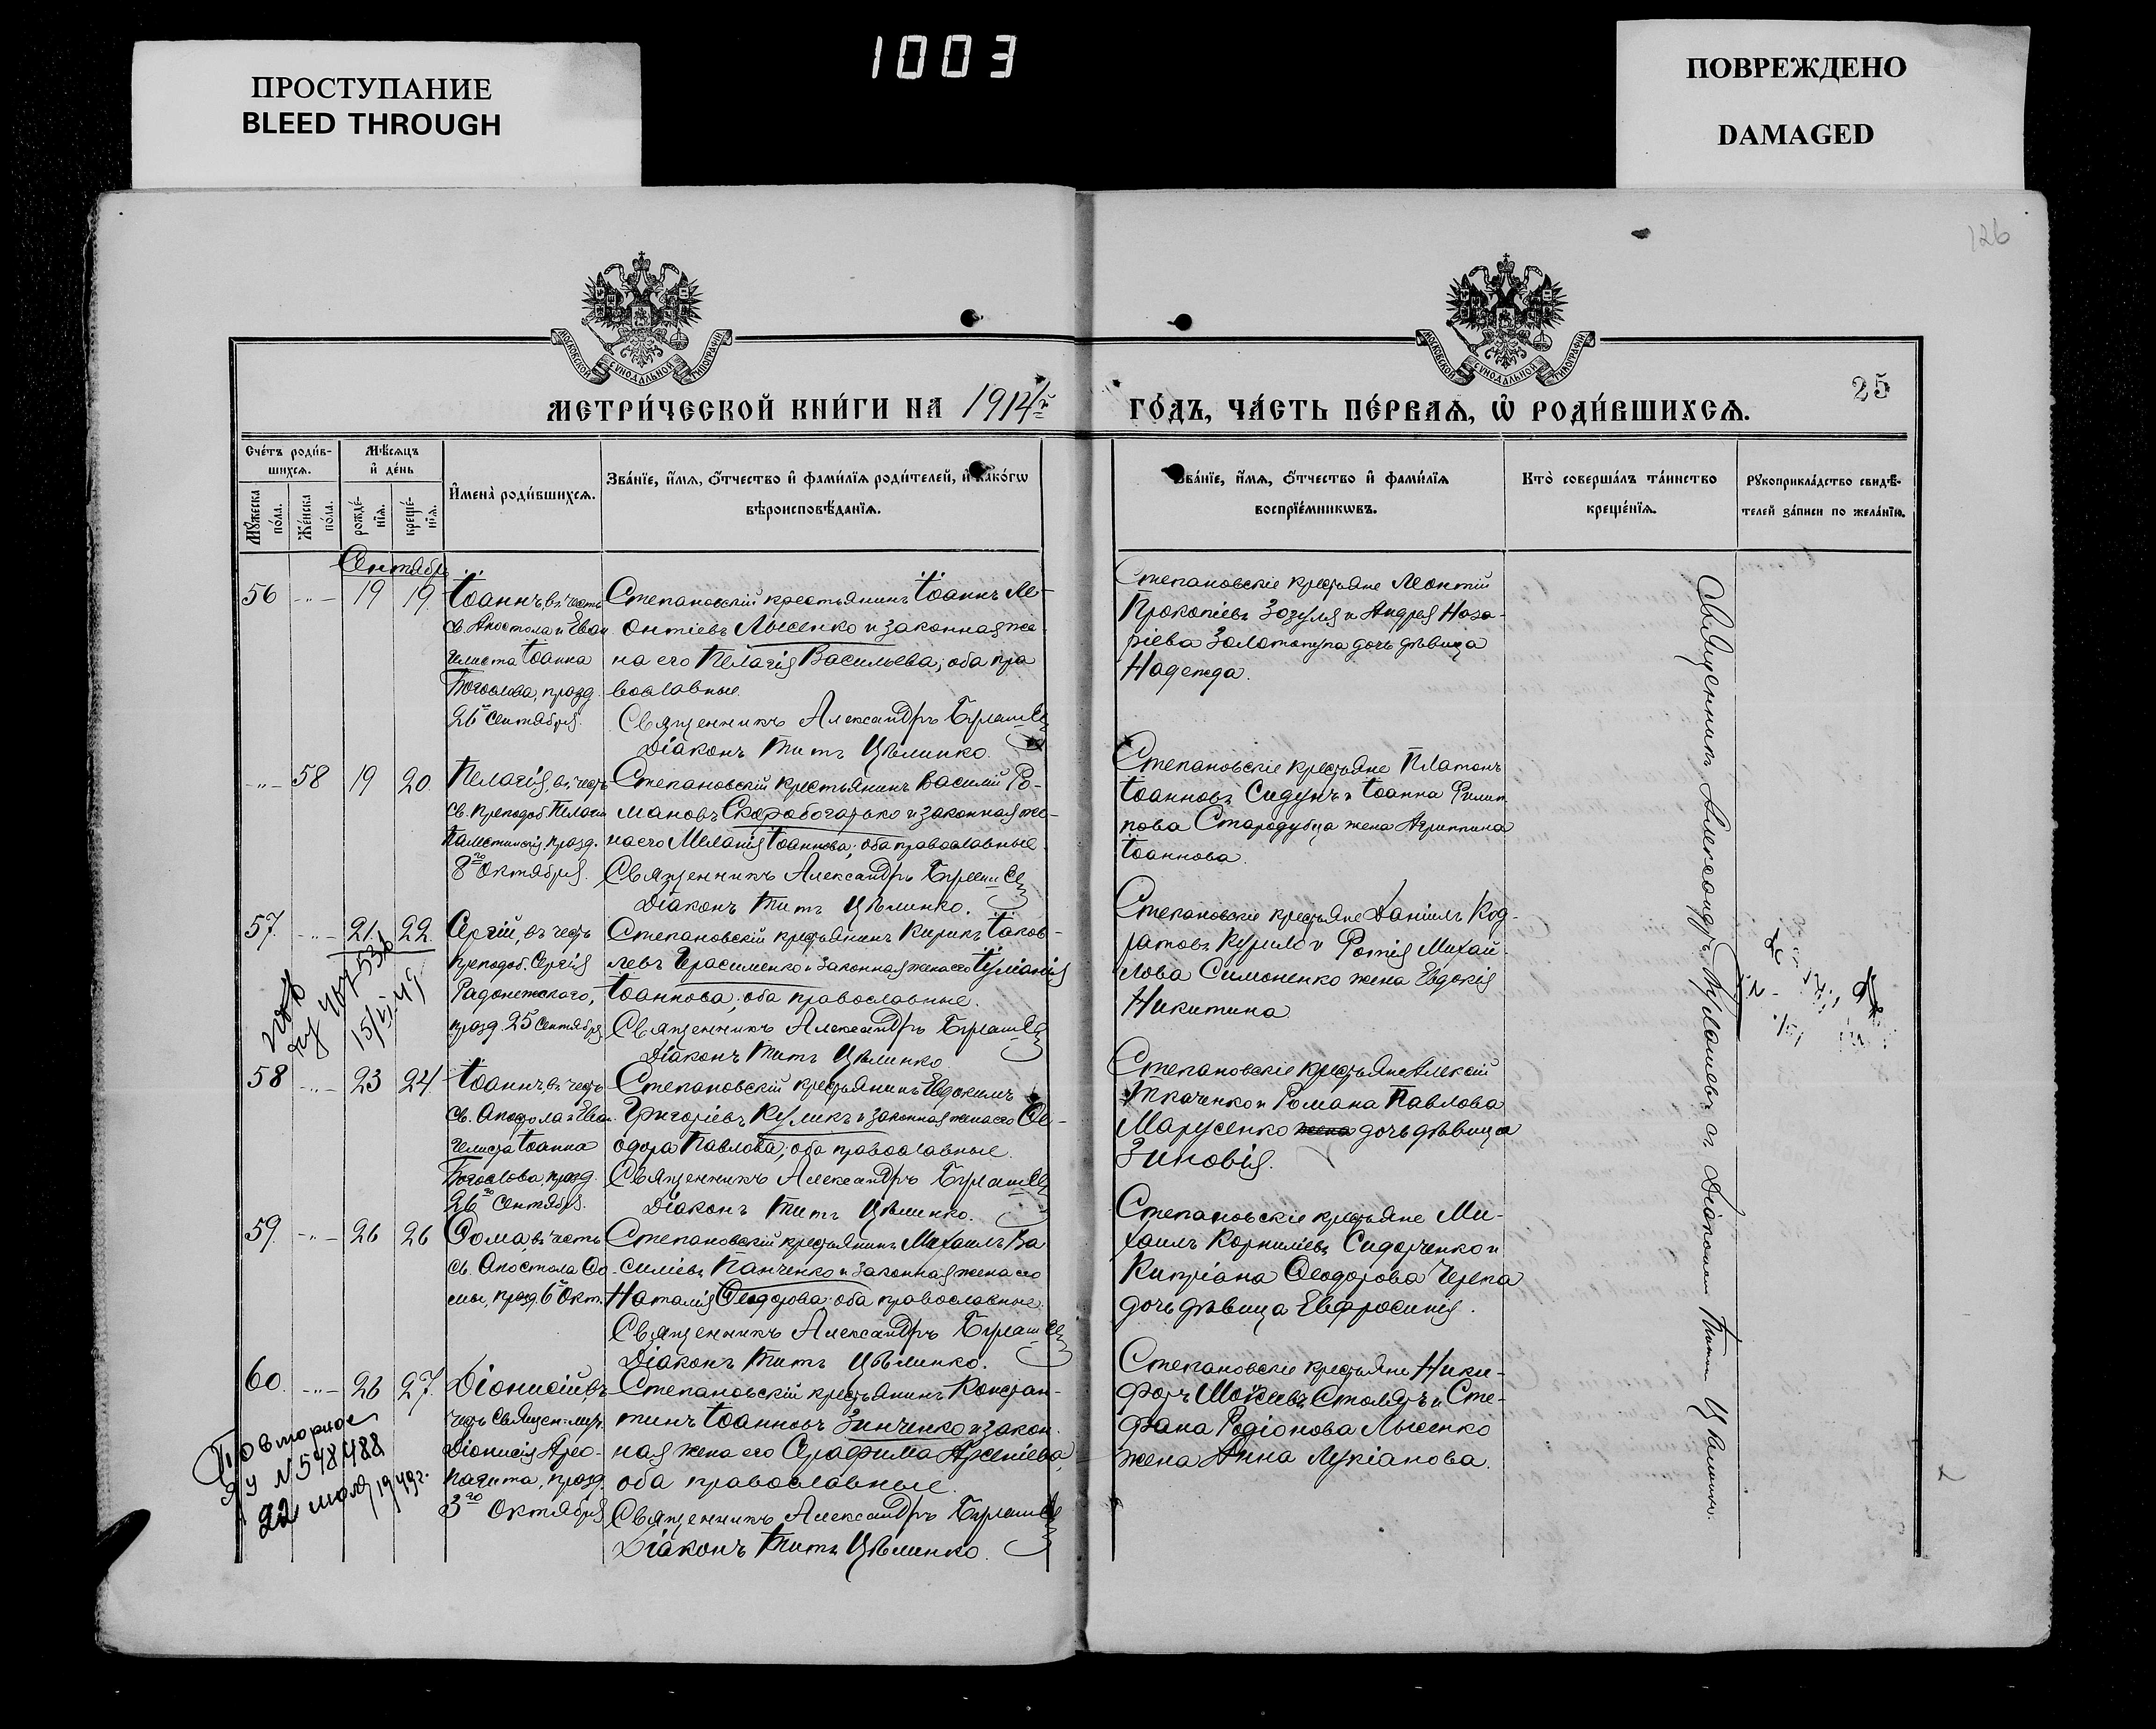 ПРОСТУПАНИЕ
BLEED THROUGH
1003
ПОВРЕЖДЕНО
DAMAGED
126
МОСКОВСКОЙ СѴНОДАЛЬНОЙ ТИПОГРАФІИ
МОСКОВСКОЙ СѴНОДАЛЬНОЙ ТИПОГРАФІИ
МЕТРИ́ЧЕСКОЙ КНИ́ГИ НА 1914й
ГО́ДЪ, ЧА́СТЬ ПЕ́РВАѦ, Ѡ РОДИ́ВШИХСѦ.
25
Сче́тъ роди́в-
шихсѧ.
Мѣ́сѧцъ
и҆ де́нь
Мꙋ́жеска
по́ла.
Же́нска
по́ла.
рожде́-
нїѧ.
креще́-
нїѧ.
И҆мена̀ роди́вшихсѧ.
Зва́нїе, и҆́мѧ, ѻ҆́тчество и҆ фами́лїѧ роди́телей, и҆ како́гѡ
вѣроисповѣ́данїѧ.
Зва́нїе, и҆́мѧ, ѻ҆́тчество и҆ фами́лїѧ
воспрїе́мникѡвъ.
Кто̀ соверша́лъ та́инство
креще́нїѧ.
Рꙋкоприкла́дство свидѣ́-
телей за́писи по жела́нїю.
Сентябрь
56 -„- 19 19
Іоаннъ, въ честь
св. Апостола и Еван
гелиста Іоанна
Богослова, празд.
26го Сентября.
Степановскій крестьянинъ Іоаннъ Ле-
онтіевъ Лысенко и законная же-
на его Пелагія Васильева; оба пра
вославные.
Священникъ Александръ
Діаконъ Титъ Цѣлинко.
Степановскіе крестьяне Леонтій
Прокопіевъ Зозуля и Андрея Наза-
ріева Залотопупа дочь дѣвица
Надежда.
-„- 58 19 20.
Пелагія, въ честь
св. Преподоб. Пелагіи
Палестинскія, празд.
8го Октября.
Степановскій крестьянинъ Василій Ро-
мановъ Скоробогатько и законная же-
на его Меланія Іоаннова; оба православные
Священникъ Александръ
Діаконъ Титъ Цѣлинко.
Степановскіе крестьяне Платонъ
Іоанновъ Сидунъ и Іоанна Филип
пова Стародубца жена Агриппина
Іоаннова.
57. -„- 21. 22.
Сергій, въ честь
преподоб. Сергія
Радонежскаго,
празд. 25 Сентября
Степановскій крестьянинъ Кирикъ Іаков-
левъ Герасименко и законная жена его Іуліанія
Іоаннова; оба православные.
Священникъ Александръ
Діаконъ Титъ Цѣлинко
Степановскіе крестьяне Даніилъ Код-
ратовъ Курило и Фотія Михай-
лова Симоненко жена Евдокія
Никитина
15/VI.49
58 -„- 23 24.
Іоаннъ, въ честь
св. Апостола и Еван.
гелиста Іоанна
Богослова, празд.
26го Сентября.
Степановскій крестьянинъ Евдокимъ
Григоріевъ Куликъ и законная жена его Ѳе-
одора Павлова; оба православные.
Священникъ Александръ
Діаконъ Титъ Цѣлинко.
Степановскіе крестьяне Алексій
Ткаченко и Романа Павлова
Марусенко жена дочь дѣвица
Зиновія.
59. -„- 26 26
Ѳома, въ честь
св. Апостола Ѳо-
мы, празд. 6го Окт.
Степановскій крестьянинъ Михаилъ Ва
силіевъ Панченко и законная жена его
Наталія Ѳеодорова; оба православные.
Священникъ Александръ
Діаконъ Титъ Цѣлинко.
Степановскіе крестьяне Ми-
хаилъ Корниліевъ Сидорченко и
Кипріана Ѳеодорова Черепа
дочь дѣвица Евфросинія.
60. -„- 26 27.
Діонисій, въ
честь Священ.-муч.
Діонисія Арео-
пагита, празд.
3го Октября
Степановскій крестьянинъ Констан-
тинъ Іоанновъ Зинченко и закон
ная жена его Серафима Арсеніева,
оба православные.
Священникъ Александръ
Діаконъ Титъ Цѣлинко.
Степановскіе крестьяне Ники-
форъ Моисеевъ Столяръ и Сте-
фана Родіонова Лысенко
жена Анна Лукіанова.
Повторное
ЯУ N 548488
22 июля 1949г.
Священникъ Александръ съ Діакономъ Титомъ Цѣлинко.